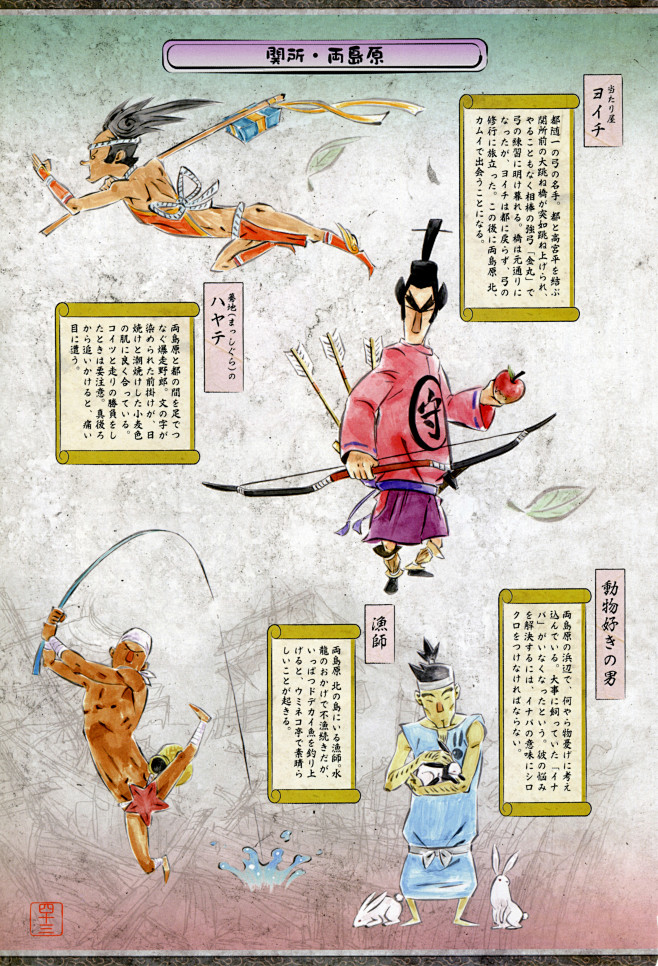 関所・両島原
当たり屋
ヨイチ
都随一の弓の名手。都と高宮平を結ぶ
関所前の大跳ね橋が突如跳ね上げられ、
やることもなく相棒の強弓「金丸」で
弓の練習に明け暮れる。橋は元通りに
なったが、ヨイチは都に戻らず、弓の
修行に旅立った。この後に両島原 北、
カムイで出会うことになる。
驀地(まっしぐら)の
ハヤテ
両島原と都の間を足でつ
なぐ爆走野郎。文の字が
染められた前掛けが、日
焼けと潮焼けした小麦色
の肌に良く合っている。
コイツと走りの勝負をし
たときは要注意。真後ろ
から追いかけると、痛い
目に遭う。
守
動物好きの男
両島原の浜辺で、何やら物憂げに考え
込んでいる。大事に飼っていた「イナ
バ」がいなくなったという。彼の悩み
を解決するには、イナバの意味にシロ
クロをつけなければならない。
漁師
両島原 北の島にいる漁師。水
龍のおかげで不漁続きだが、
いっぱつドデカイ魚を釣り上
げると、ウミネコ亭で素晴ら
しいことが起きる。
四十三